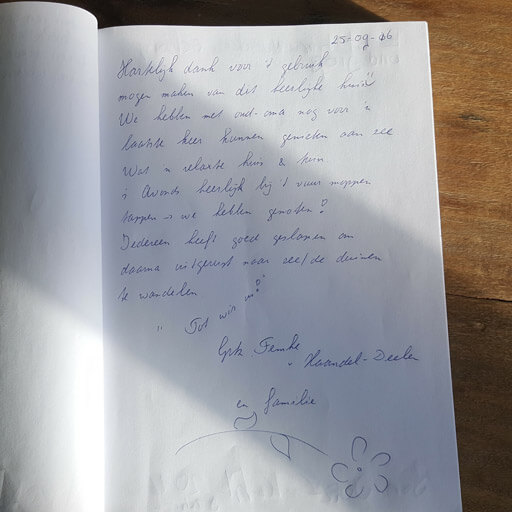 25-09-16
Hartelijk dank voor 't gebruik
mogen maken van dit heerlijke huis
We hebben met oud-oma nog voor 'n
laatste keer kunnen genieten aan zee
Wat 'n relaxte huis & tuin
's Avonds heerlijk bij 't vuur moppen
tappen → we hebben genoten!
Iedereen heeft goed geslapen om
daarna uitgerust naar zee/de duinen
te wandelen
" Tot wir
Grtz Femke
Haandel-Deelen
en familie